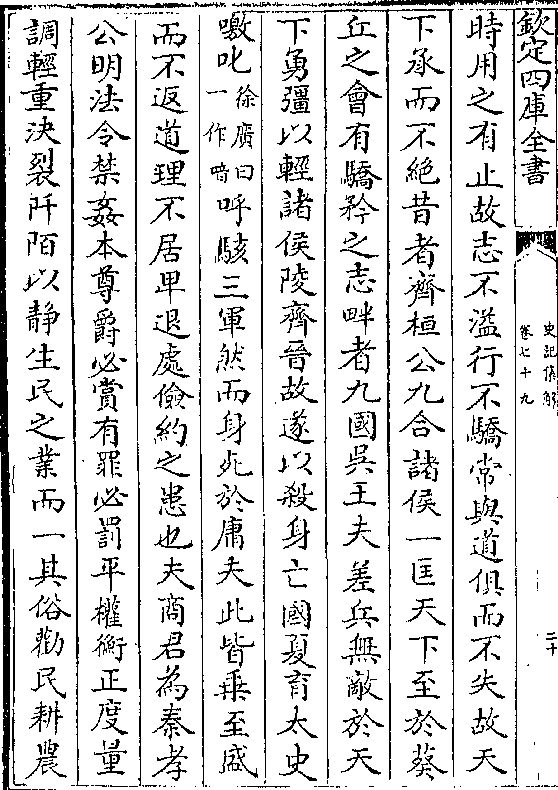 欽定四庫全書
史記集解
卷七十九
二十
時用之有止故志不溢行不驕常與道俱而不失故天
下承而不絕昔者齊桓公九合諸侯一匡天下至於葵
丘之會有驕矜之志畔者九國吳王夫差兵無敵於天
下勇彊以輕諸侯陵齊晉故遂以殺身亡國夏育太史
噭叱徐廣曰一作喑呼駭三軍然而身死於庸夫此皆乗至盛
而不返道理不居卑退處儉約之患也夫商君為秦孝
公明法令禁姦本尊爵必賞有罪必罰平權衡正度量
調輕重決裂阡陌以靜生民之業而一其俗勸民耕農